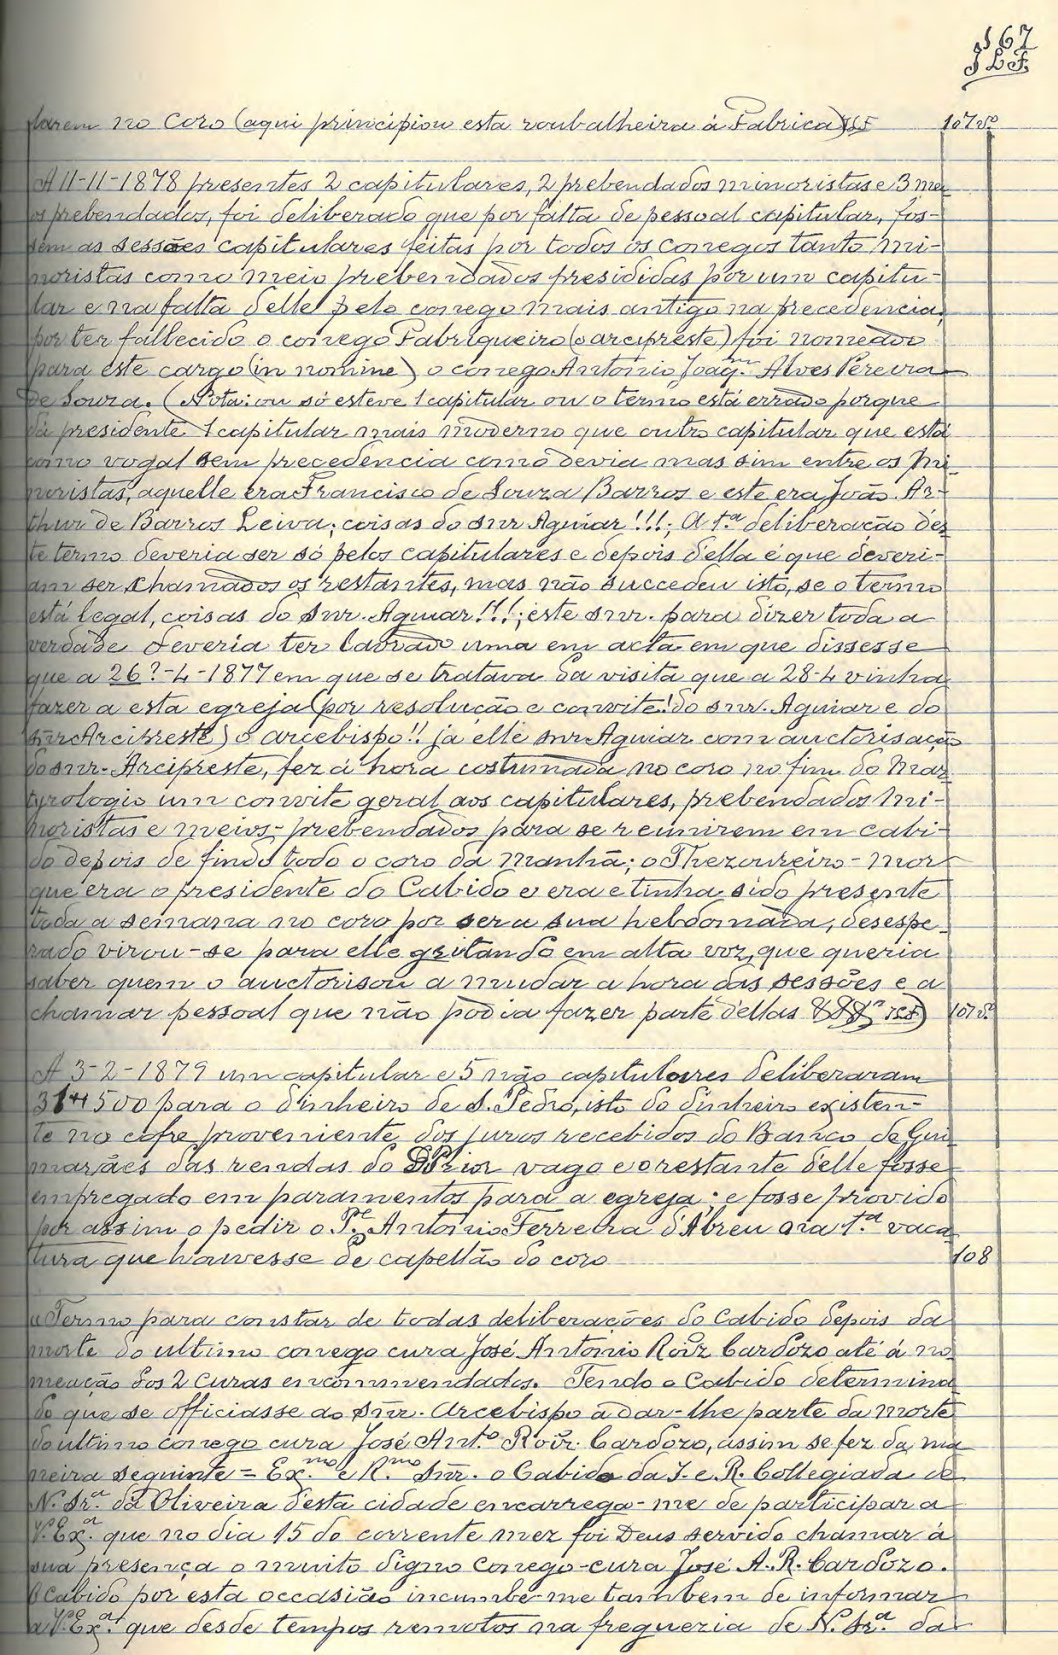 167
J L F
larem no coro (aqui principiou esta roubalheira á Fabrica) JLF 107 v.º
A 11-11-1878 presentes 2 capitulares, 2 prebendados minoristas e 3 mei-
os prebendados, foi deliberado que por falta de pessoal capitular, fos-
sem as sessões capitulares feitas por todos os conegos tanto mi-
noristas como meio prebendados presididas por um capitu-
lar e na falta d'elle pelo conego mais antigo na precedencia,
por ter fallecido o conego Fabriqueiro (o arcipreste) foi nomeado
para este cargo (in nomine) o conego Antonio Joaq.m Alves Pereira
de Souza. (Nota: ou só esteve 1 capitular ou o termo está errado porque
dá presidente 1 capitular mais moderno que outro capitular que está
como vogal sem precedencia como devia mas sim entre os mi-
noristas, aquelle era Francisco de Souza Barros e este era João Ar-
thur de Barros Leiva; coisas do snr Aguiar!!!; A 1.ª deliberação des-
te termo deveria ser só pelos capitulares e depois d'ella é que deveri-
am ser chamados os restantes, mas não succedeu isto, se o termo
está legal, coisas do snr. Aguiar!!!; este snr. para dizer toda a
verdade deveria ter lavrado uma em acta em que dissesse
que a 26?-4-1877 em que se tratava da visita que a 28-4 vinha
fazer a esta egreja (por resolução e convite! do snr. Aguiar e do
snr Arcipreste) o arcebispo!! já elle snr Aguiar com auctorisação
do snr. Arcipreste, fez á hora costumada no coro no fim do Mar-
tyrologio um convite geral aos capitulares, prebendados mi-
noristas e meios-prebendados para se reunirem em cabi-
do depois de findo todo o coro da manhã; o Thezoureiro-mor
que era o presidente do Cabido e era e tinha sido presente
toda a semana no coro por ser a sua hebdomada, desespe-
rado virou-se para elle gritando em alta voz, que queria
saber quem o auctorisou a mudar a hora das sessões e a
chamar pessoal que não podia fazer parte d'ellas JLF) 107 v.º
A 3-2-1879 um capitular e 5 não capitulares deliberaram
31$500 para o dinheiro de S. Pedro, isto do dinheiro existen-
te no cofre proveniente dos juros recebidos do Banco de Gui-
marães das rendas do DPrior vago e o restante d'elle fosse
empregado em paramentos para a egreja; e fosse provido
por assim o pedir o P.e Antonio Ferreira d'Abreu na 1.ª vaca-
tura que houvesse de capellão do coro 108
"Termo para constar de todas deliberações do Cabido depois da
morte do ultimo conego cura José Antonio Roiz Cardozo até á no-
meação dos 2 curas encommendados. Tendo o Cabido determina-
do que se officiasse ao Snr. Arcebispo a dar-lhe parte da morte
do ultimo conego cura José Ant.º Roiz Cardozo, assim se fez da ma-
neira seguinte = Ex.mo e R.mo Snr. o Cabido da I. e R. Collegiada de
N. Sr.ª da Oliveira d'esta cidade encarrega-me de participar a
V. Ex.ª que no dia 15 do corrente mez foi Deus servido chamar á
sua presença o muito digno conego-cura José A. R. Cardozo.
O cabido por esta occasião incumbe-me tambem de informar
a V. Ex.ª que desde tempos remotos na freguezia de N. Sr.ª da